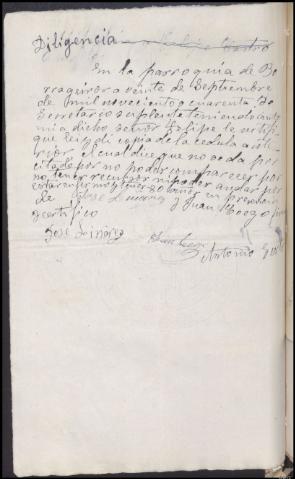 Diligencia Felipe Castro
En la parroquia de Bo
rraqueiros a veinte de Septiembre
de mil novecientos cuarenta, Yo
Secretario suplente teniendo ante
mi a dicho señor Felipe le notifi
que lei y di copia de la cedula ante
rior el cual dice que no se da por
citado por no poder comparecer por
no tener recursos ni poder andar por
estar enfermo y tener 80 años en presencia
de Jose Linarez y Juan
y certifico
Jose Linarez
Antonio